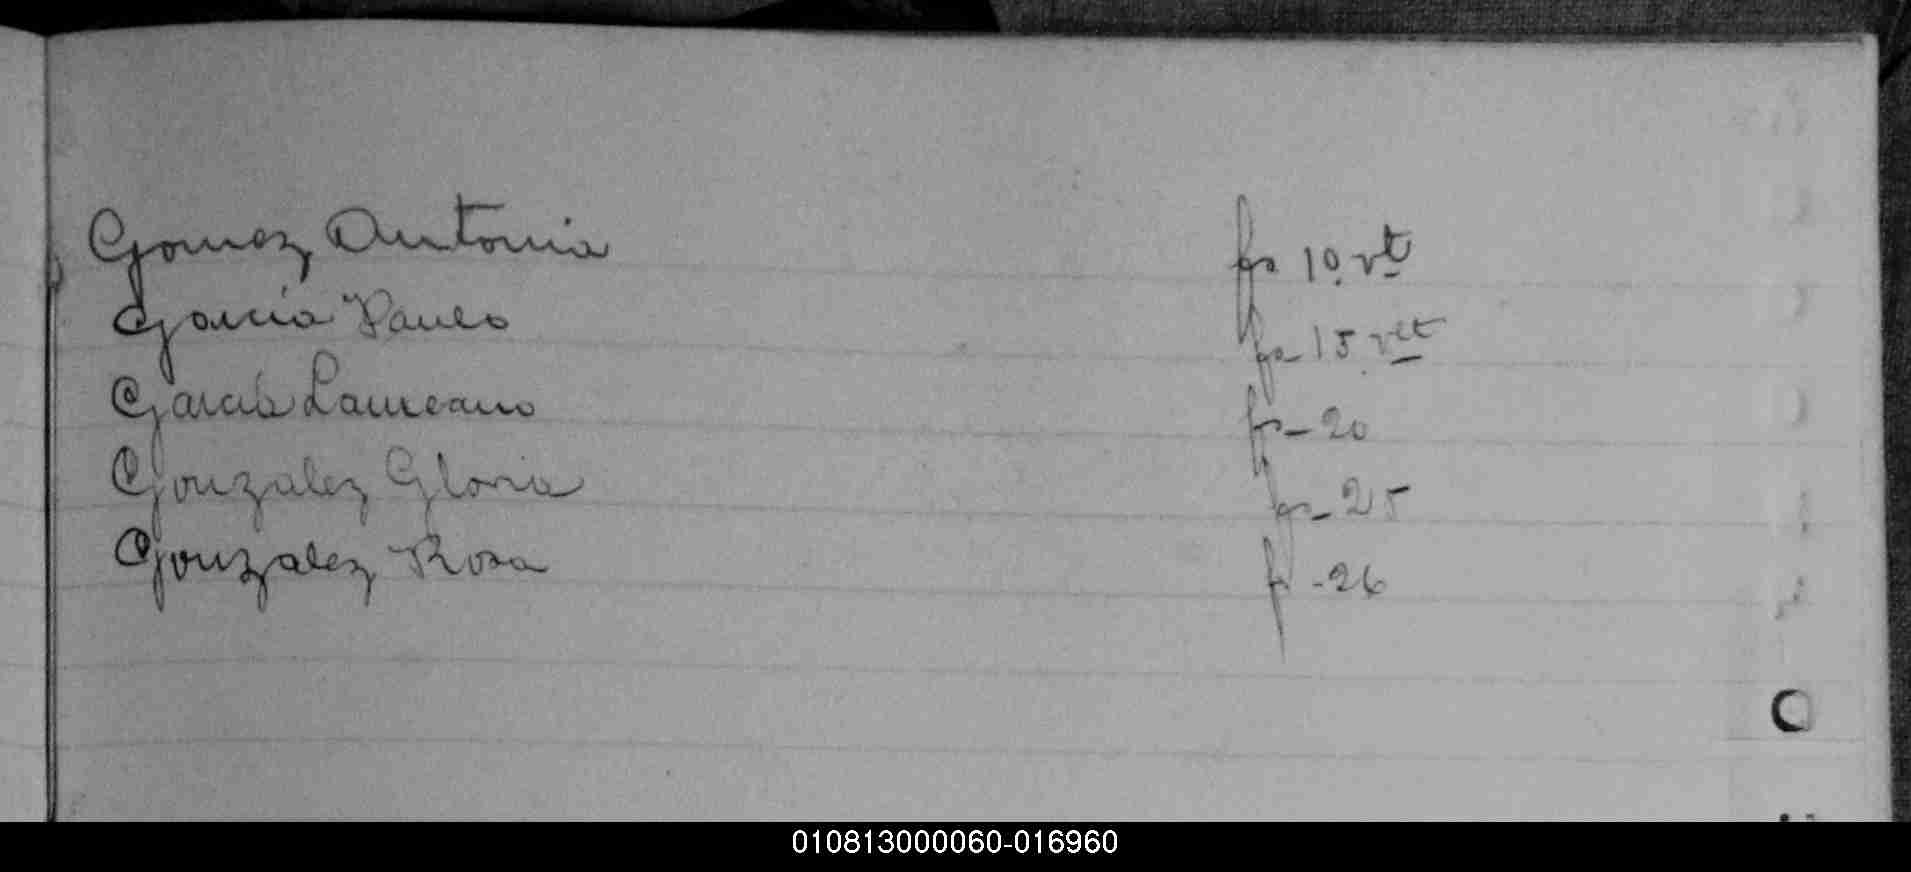 Gomez Antonia fs 10 vt
García Paulo fs 15 vlt
García Laureano fs - 20
Gonzalez Gloria fs - 25
Gonzalez Rosa fs - 26
010813000060-016960